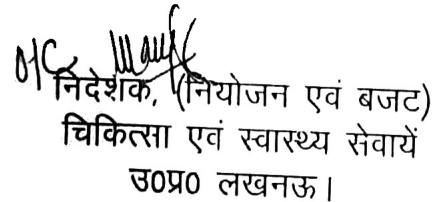 निदेशक, (नियोजन एवं बजट)
चिकित्सा एवं स्वास्थ्य सेवायें
उ0प्र0 लखनऊ।